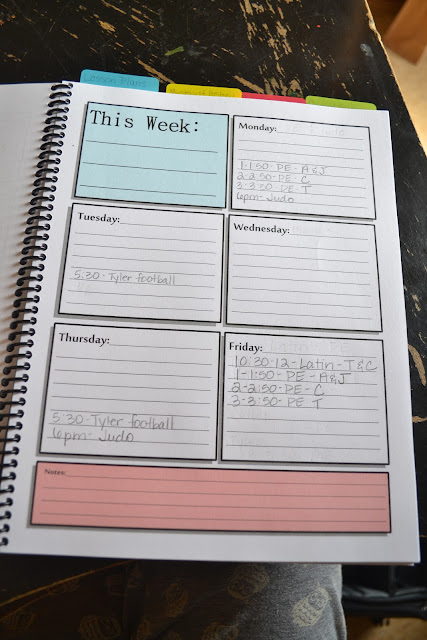 Lesson Plans
This Week:
Monday:
1-1:50-PE-A&J
2-2:50-PE-C
3-3:50-PE T
6pm-Judo
Tuesday:
5:30-Tyler football
Wednesday:
Thursday:
5:30-Tyler football
6pm-Judo
Friday:
10:30-12-Latin-T&C
1-1:50-PE-A&J
2-2:50-PE-C
3-3:50-PE T
Notes: